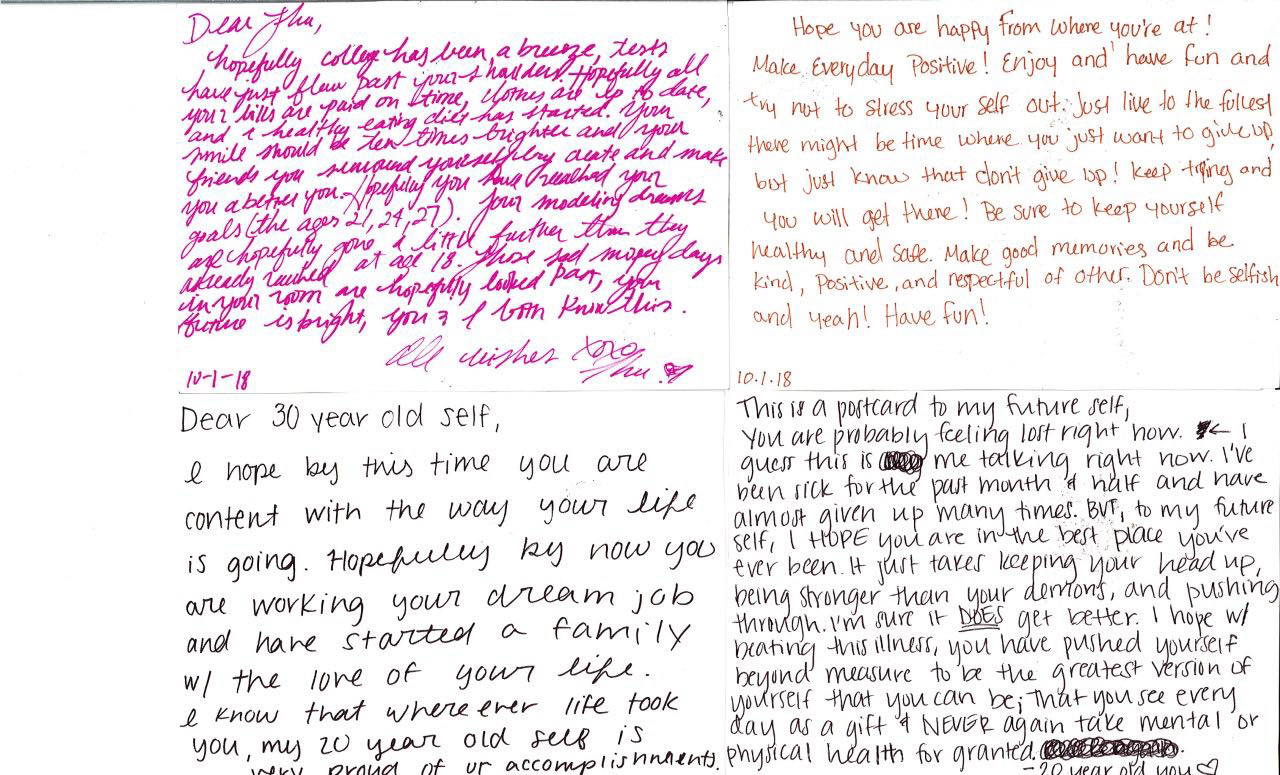 Dear Thu,
hopefully college has been a breeze, tests
have just flew past your shoulders. Hopefully all
your bills are paid on time, clothes are up to date,
and a healthy eating diet has started. Your
smile should be ten times brighter and your
friends you surround yourself by create and make
you a better you. Hopefully you have reached your
goals (the ages 21, 24, 27). Your modeling dreams
are hopefully gone a little further than they
already reached at age 18. Those sad mopey days
in your room are hopefully looked past, your
future is bright, you & I both know this.
All wishes xoxo
Thu.
10-1-18
Hope you are happy from where you're at!
Make Everyday Positive! Enjoy and have fun and
try not to stress your self out. Just live to the fullest
there might be time where you just want to give up,
but just know that don't give up! keep trying and
you will get there! Be sure to keep yourself
healthy and safe. Make good memories and be
kind, Positive, and respectful of other. Don't be selfish
and yeah! Have fun!
10.1.18
Dear 30 year old self,
I hope by this time you are
content with the way your life
is going. Hopefully by now you
are working your dream job
and have started a family
w/ the love of your life.
I know that where ever life took
you, my 20 year old self is
very proud of ur accomplishments.
This is a postcard to my future self,
You are probably feeling lost right now. ← I
guess this is me talking right now. I've
been sick for the past month & half and have
almost given up many times. BUT, to my future
self, I HOPE you are in the best place you've
ever been. It just takes keeping your head up,
being stronger than your demons, and pushing
through. I'm sure it DOES get better. I hope w/
beating this illness, you have pushed yourself
beyond measure to be the greatest version of
yourself that you can be; That you see every
day as a gift & NEVER again take mental or
physical health for granted.
- 20 year old you ♡